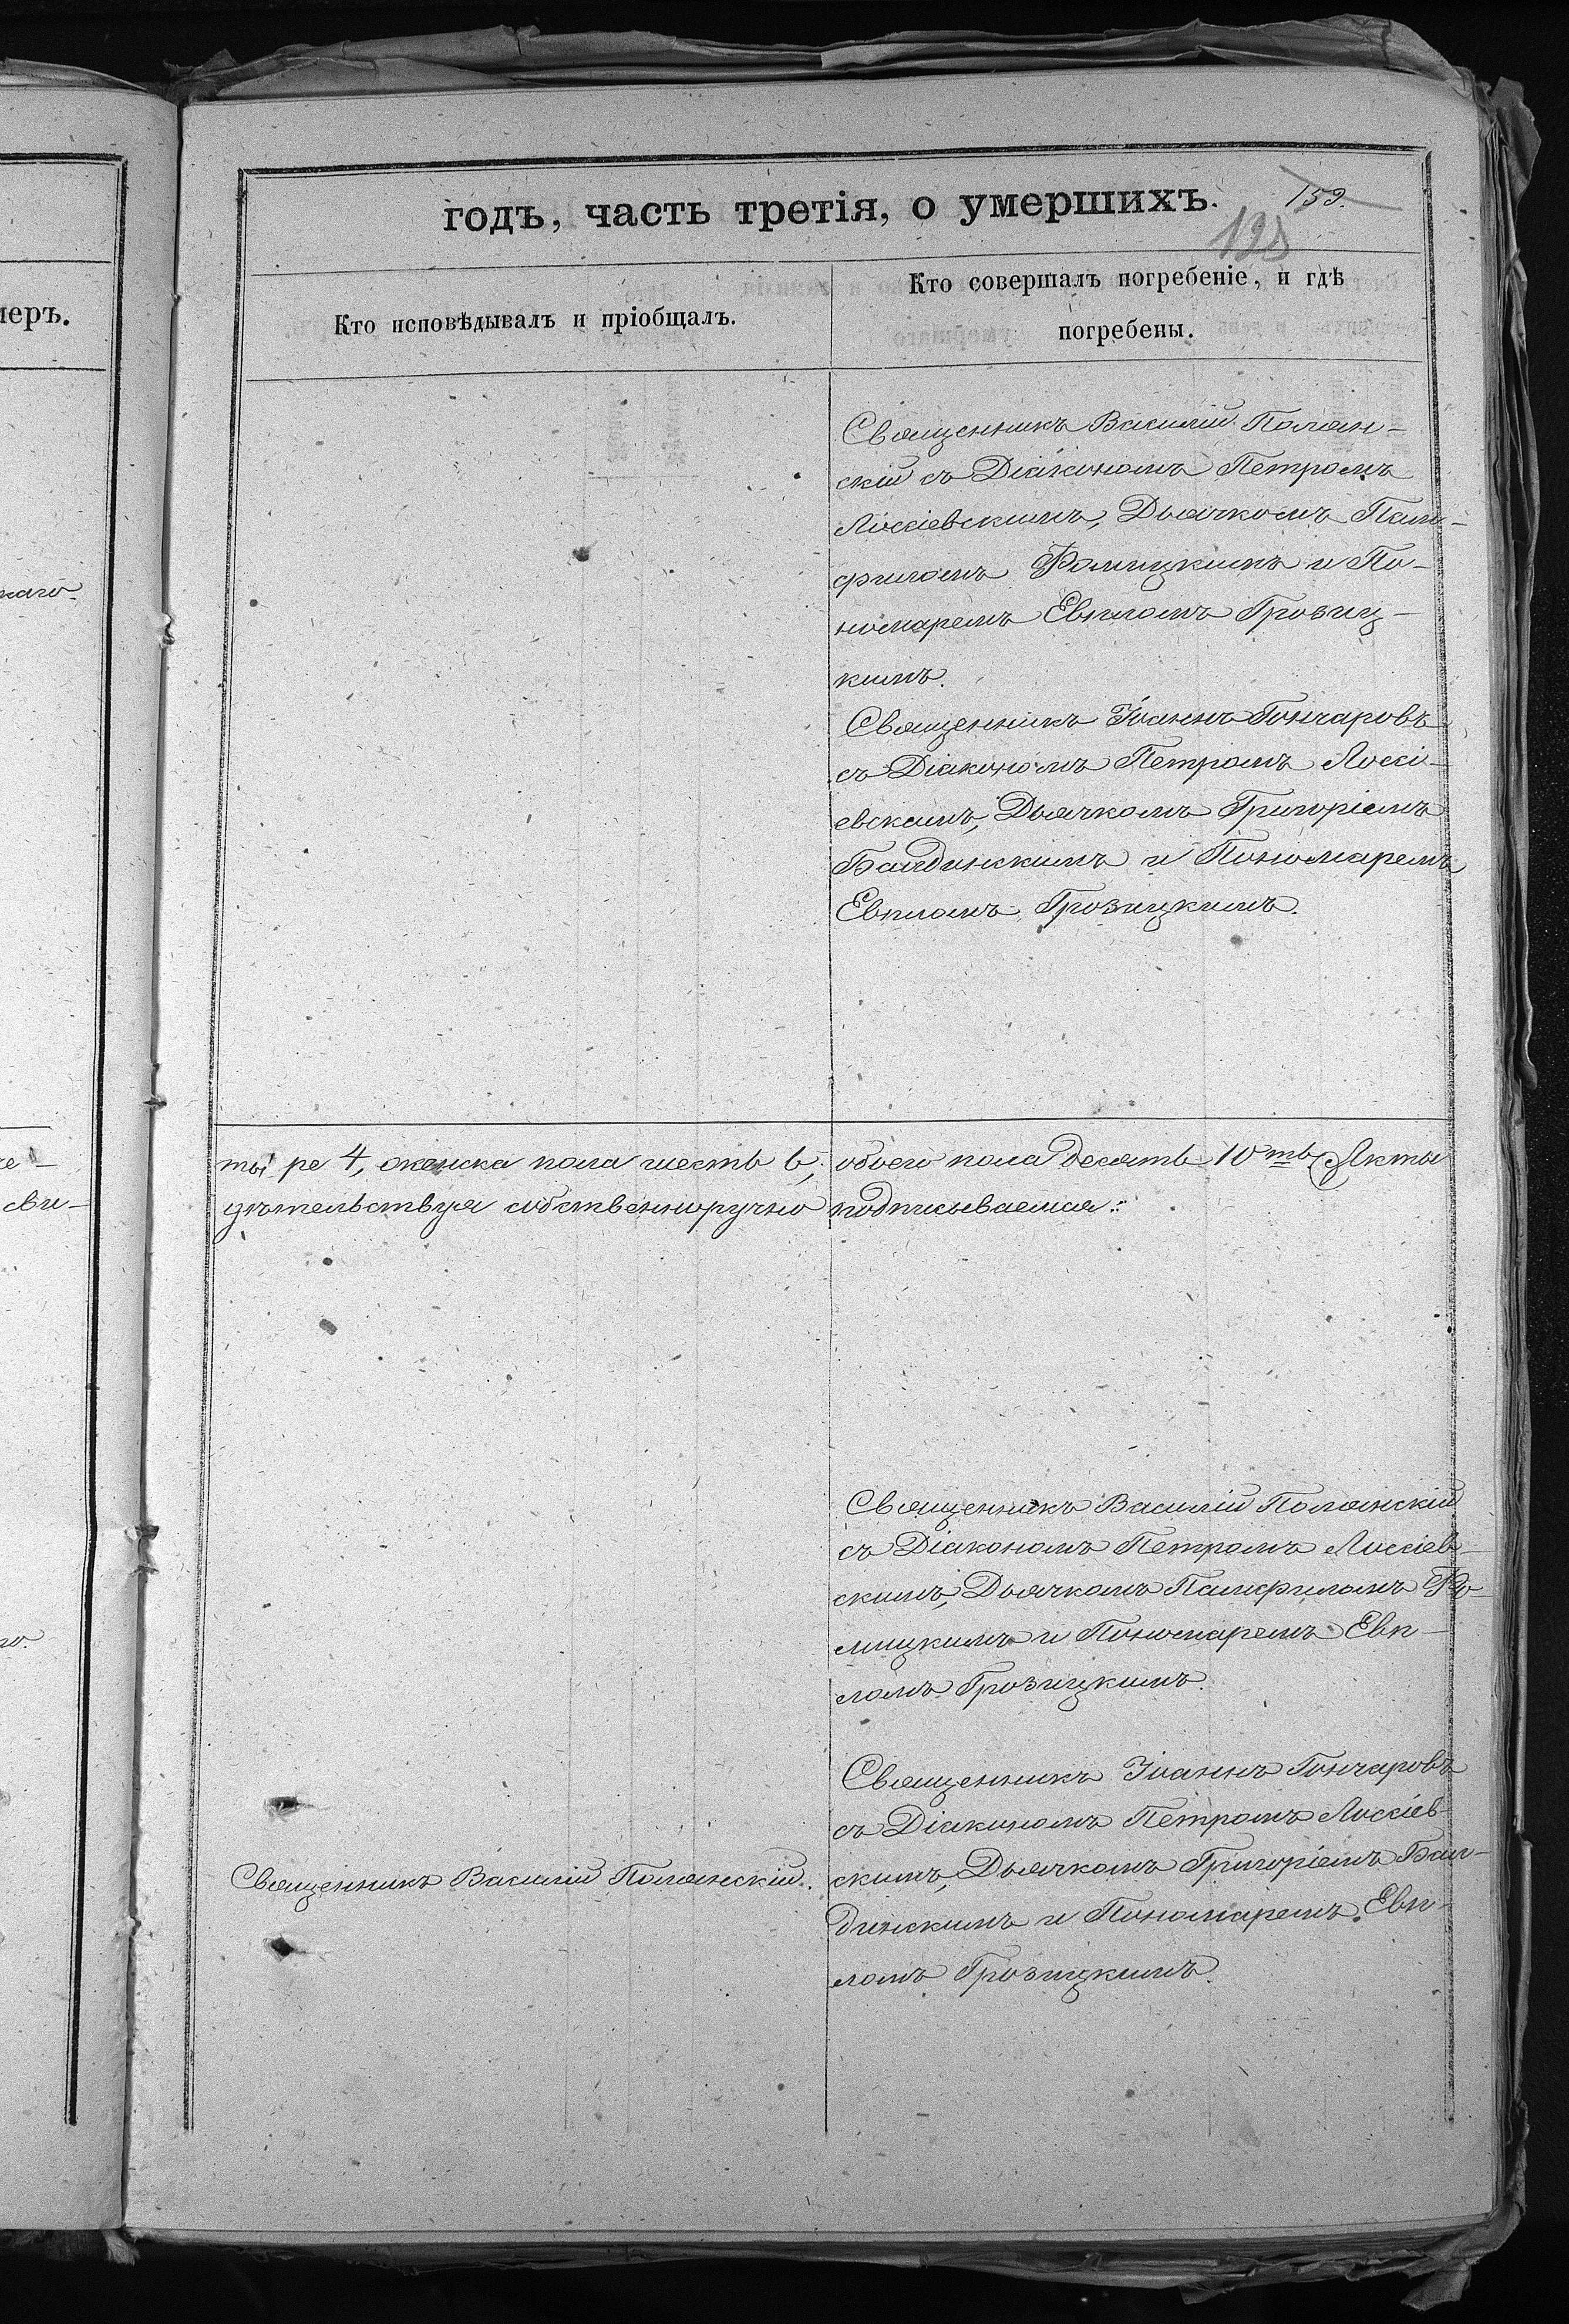 годъ, часть третія, о умершихъ.
159.
Кто исповѣдывалъ и пріобщалъ.
Кто совершалъ погребеніе, и гдѣ
погребены.
меръ.
Священникъ Василій Полян-
скій съ Діакономъ Петромъ
Лоскіевскимъ, Дьячкомъ Пам-
филомъ Фомицкимъ и По-
номаремъ Евпломъ Грозиц-
кимъ.
Священникъ Іоаннъ Гончаровъ
съ Діакономъ Петромъ Лоскі-
евскимъ, Дьячкомъ Григоріемъ
Балдинскимъ и Пономаремъ
Евпломъ Грозицкимъ.
ты ре 4, женска пола шесть 6, обоего пола десять 10ть Акты
дѣтельствуя собственноручно подписываемся:
Священникъ Василій Полянскій
съ Діакономъ Петромъ Лоскіев-
скимъ, Дьячкомъ Памфиломъ Фо-
мицкимъ и Пономаремъ Евп-
ломъ Грозицкимъ.
Священникъ Іоаннъ Гончаровъ
съ Діакономъ Петромъ Лоскіев-
скимъ, Дьячкомъ Григоріемъ Бал-
динскимъ и Пономаремъ Евп-
ломъ Грозицкимъ.
Священникъ Василій Полянскій.
каго.
сви-